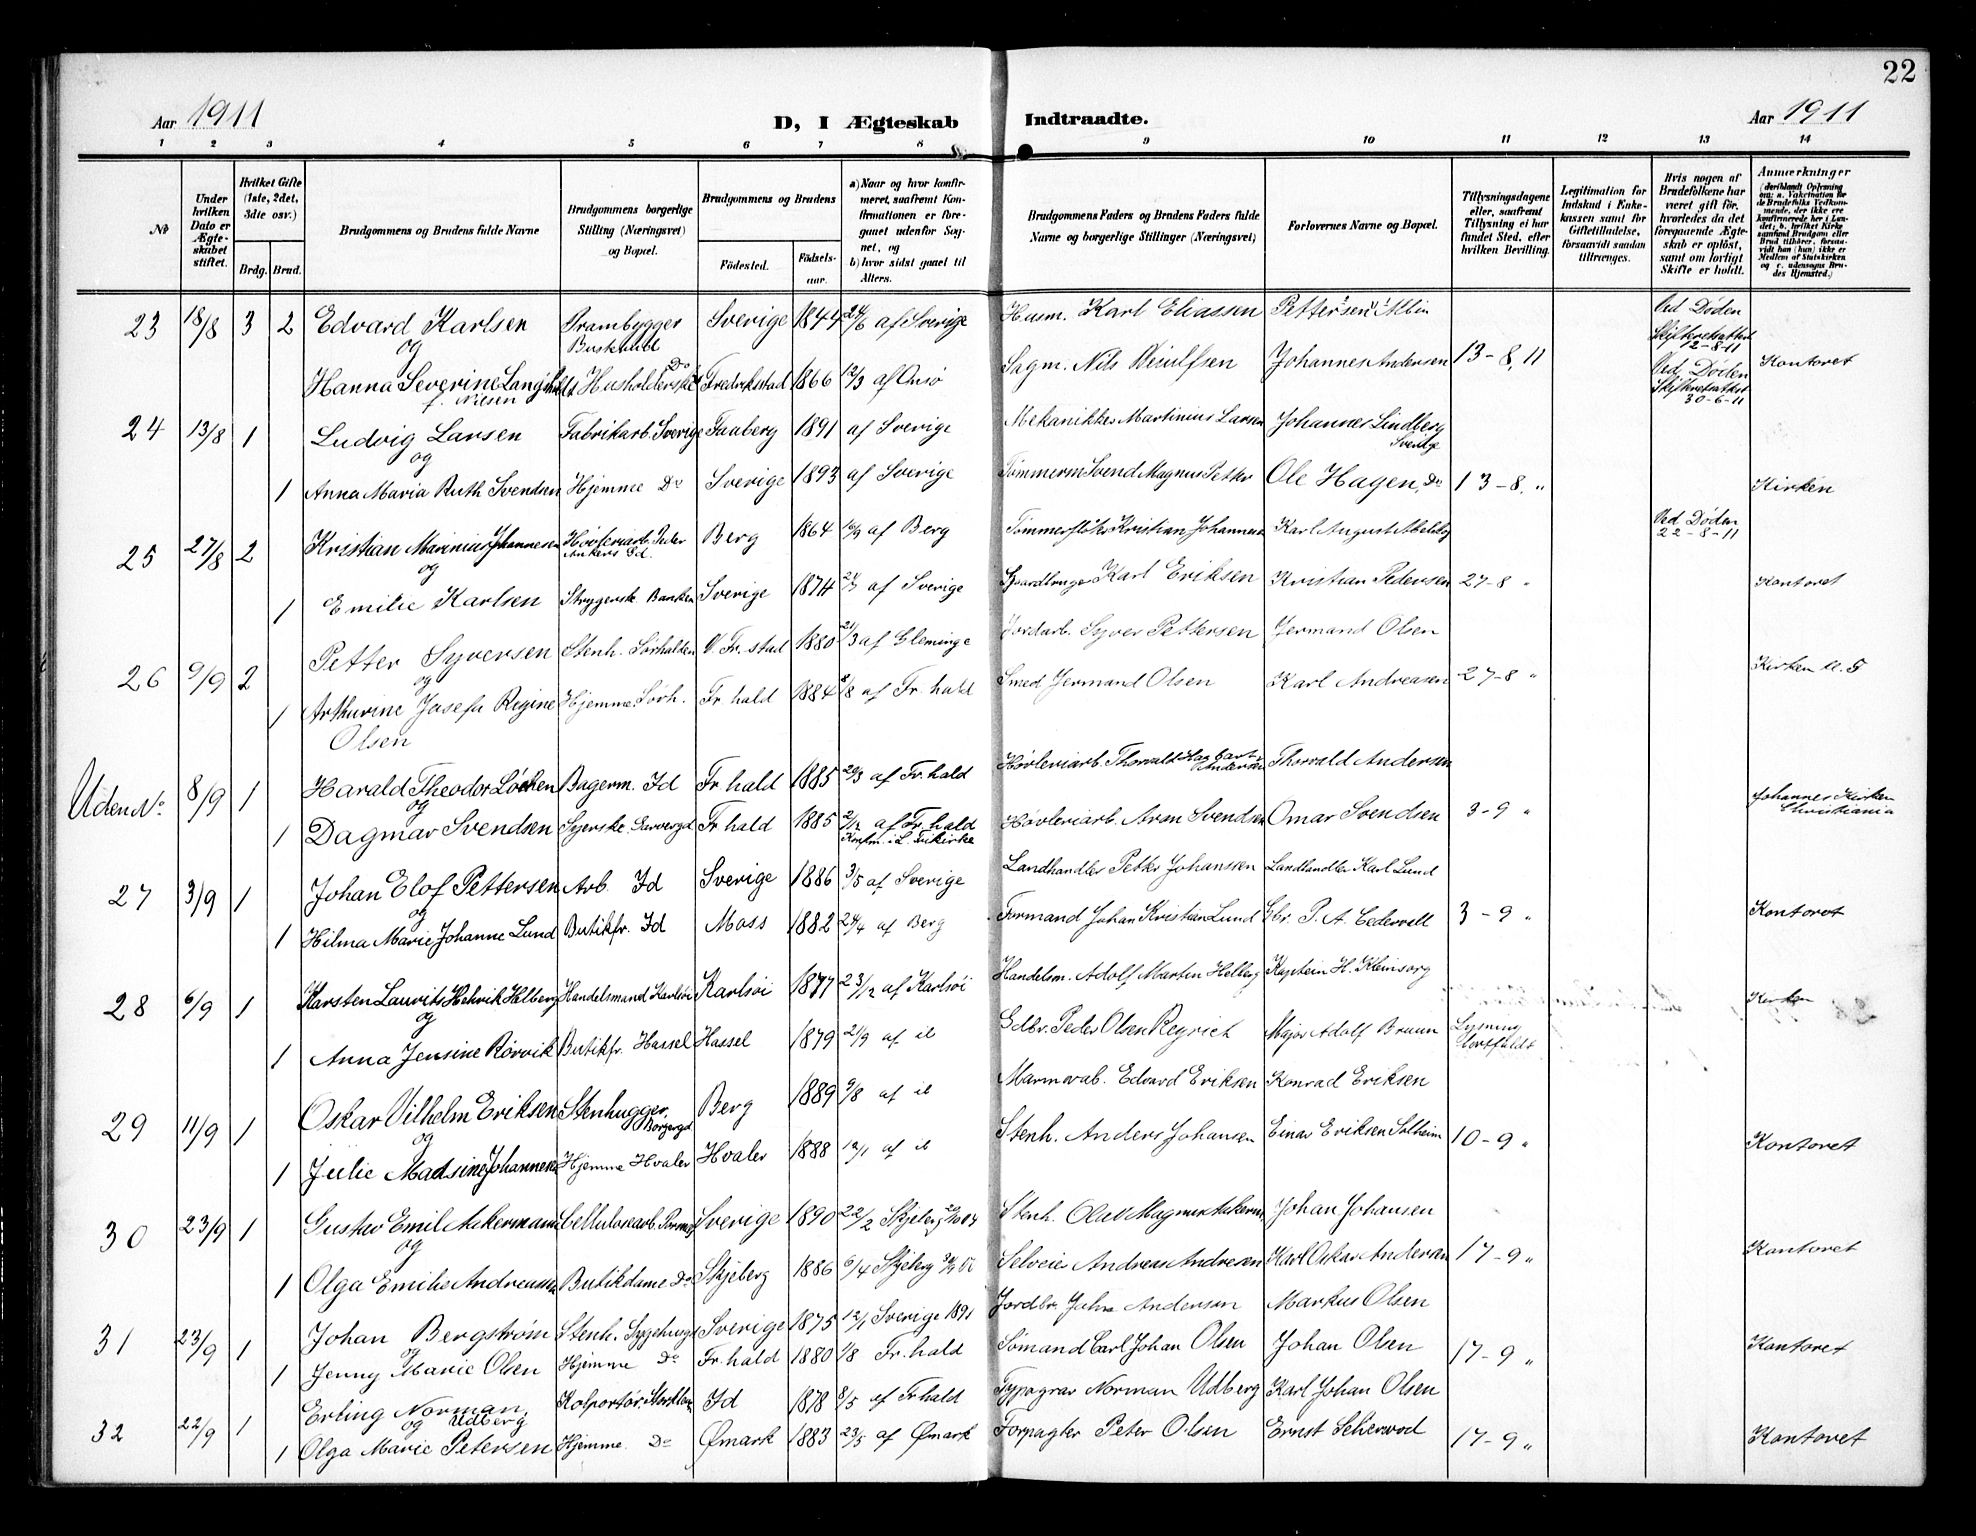 22
Aar 1911 D, I Ægteskab Indtraadte. Aar 1911
1 2 3 4 5 6 7 8 9 10 11 12 13 14
No
Under hvilken Dato er Ægteskabet stiftet.
Hvilket Gifte (1ste, 2det, 3die osv.)
Brdg. Brud.
Brudgommens og Brudens fulde Navne
Brudgommens borgerlige Stilling (Næringsvei) og Bopæl.
Brudgommens og Brudens
Födested. Födselsaar.
a) Naar og hvor konfirmeret, saafremt Konfirmationen er foregaaet udenfor Sognet, og
b) hvor sidst gaaet til Alters.
Brudgommens Faders og Brudens Faders fulde Navne og borgerlige Stillinger (Næringsvei)
Forlovernes Navne og Bopæl.
Tillysningsdagene eller, saafremt Tillysning ei har fundet Sted, efter hvilken Bevilling.
Legitimation for Indskud i Enkekassen samt for Giftetilladelse, forsaavidt saadan tiltrænges.
Hvis nogen af Brudefolkene har været gift för, hvorledes da det foregaaende Ægteskab er oplöst, samt om lovligt Skifte er holdt.
Anmærkninger
23 18/8 3 2 Edvard Karlsen Prambygger Sverige 1844 24/6 af Sverige Husm. Karl Eliassen Ved Döden
og 12-8-11
Hanna Severine Fredrikstad 1866 12/3 af Onsö Sagm. Nils Johannes Andersen 13-8, 11 Ved Döden Kontoret
30-6-11
24 13/8 1 Ludvig Larsen Fabrikarb. Sverige Faaberg 1891 af Sverige Mekanikker Martinius Larsen Johannes Lindberg
og Sverige
1 Anna Maria Ruth Svendsen Hjemme Do Sverige 1893 af Sverige Tömmerm Svend Magnus Petter Ole Hagen, Do 13-8. „ Kirken
25 27/8 2 Kristian Marinius Johannesen Hövleriarb. Peder Berg 1864 af Berg Tömmerflöter Kristian Johannesen Karl August Ved Döden
og Ankers Gd. 22-8-11
1 Emilie Karlsen Strygerske Banken Sverige 1874 af Sverige Gaardbruger Karl Eriksen Kristian Pedersen 27-8 „ Kontoret
26 9/9 2 Petter Syversen Stenh. Sörhalden Fr. stad 1880 21/3 af Gleminge Jordarb. Syver Pettersen Jermand Olsen
og
1 Arthurine Josefa Regine Hjemme Sörh. Fr. hald 1884 /8 af Fr. hald Smed Jermand Olsen Karl Andreasen 27-8 „ Kirken
Olsen
Uden No. 8/9 1 Harald Theodor Löken Bagerm. Id Fr. hald 1885 af Fr. hald Hövleriarb. Thorvald Andersen Thorvald Andersen
og
1 Dagmar Svendsen Syerske Fr. hald 1885 2/12 af Fr. hald Hövleriarb. Aron Svendsen Omar Svendsen 3-9 „ Johannes Kirken Christiania
Konfirm. i L. Frikirke
27 3/9 1 Johan Elof Pettersen Arb. Id Sverige 1886 3/5 af Sverige Landhandler Petter Johansen Landhandler Karl Lund
og
1 Hilma Marie Johanne Lund Butikfr. Id Moss 1882 24/4 af Berg Formand Johan Kristian Lund Gbr. P. A. Cedervall 3-9 „ Kontoret
28 6/9 1 Karsten Lauvits Helberg Handelsmand Karlsöi Karlsöi 1877 23/12 af Karlsöi Handelsm. Adolf Martin Helberg Kaptein H. Kleinsorg Kirken
og
1 Anna Jensine Rörvik Butikfr. Hassel Hassel 1879 21/9 af il Gdbr. Peder Olsen Major Adolf Bruun Lysning bortfaldt
29 11/9 1 Oskar Vilhelm Eriksen Stenhugger, Berg 1889 9/8 af il Marmorarb. Edvard Eriksen Konrad Eriksen
og
1 Julie Madsine Johannesen Hjemme Hvaler Hvaler 1888 12/1 af il Stenh. Anders Johansen Einar Eriksen Solheim 10-9 „ Kontoret
30 23/9 1 Gustav Emil Aakermann Cellulosearb. Sverige 1890 22/2 Skjeberg Stenh. Olav Magnus Johan Johansen
og
1 Olga Emilie Andreassen Butikdame Do Skjeberg 1886 6/4 Skjeberg Selveier Andreas Andresen Karl Oskar Andersen 17-9 „ Kontoret
31 23/9 1 Johan Bergström Stenh. Sverige 1875 12/1 Sverige 1891 Jordbr. Johan Andersen Markus Olsen
og
1 Jenny Marie Olsen Hjemme Do Fr. hald 1880 /8 Fr. hald Sömand Carl Johan Olsen Johan Olsen 17-9 „ Kontoret
32 22/9 1 Erling Norman Udberg Kolportör, Id 1878 8/5 af Fr hald Typograv Norman Udberg Karl Johan Olsen
og
1 Olga Marie Petersen Hjemme Do Ömark 1883 23/5 af Ömark Forpagter Peter Olsen Ernst 17-9 „ Kontoret